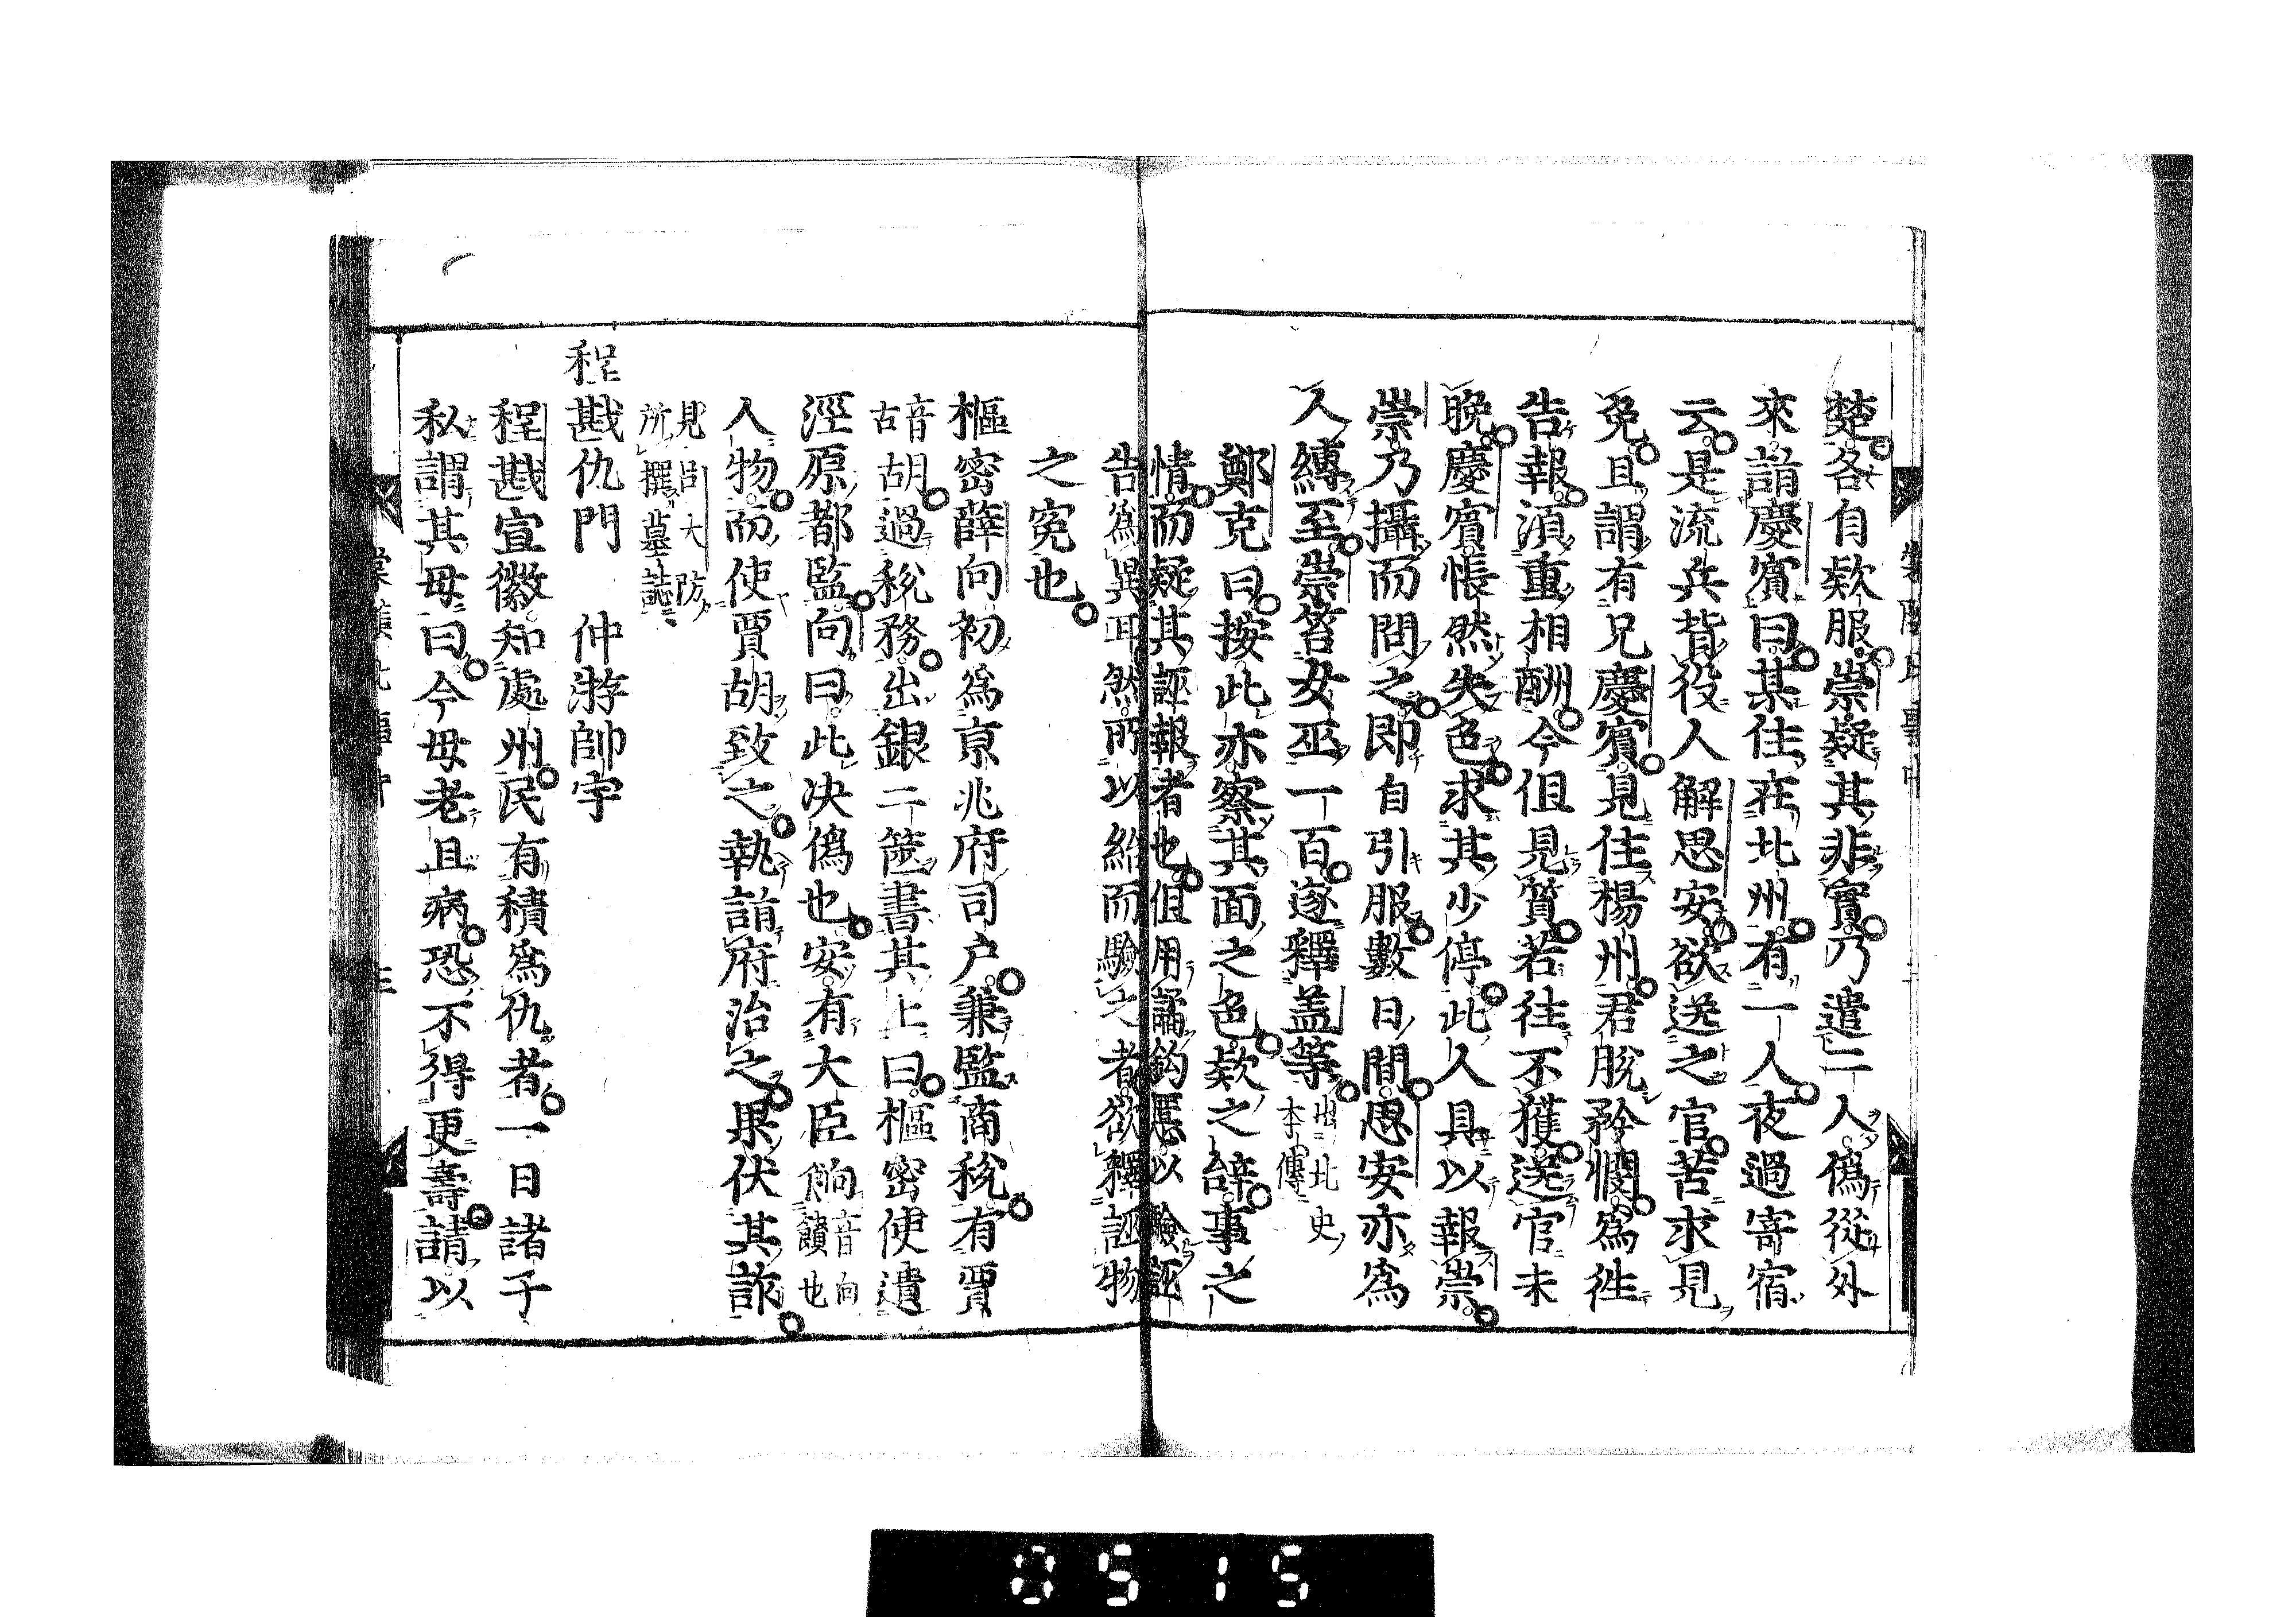 楚各自欵服崇疑其非實乃遣二人偽從外
來詣慶賓曰某住在北州有一人夜過寄宿
云是流兵背役人解思安欲送之官苦求見
免且謂有兄慶賓見住楊州君脫矜憫為徃
告報湏重相酬今但見質若往不獲送官未
晚慶賓悵然失色求其少停此人具以報崇
崇乃攝而問之即自引服數日間思安亦為
人縳至崇笞女巫一百遂釋盖等出北史李傳
鄭克曰按此亦察其面之色欵之辞事之
情而疑其誣報者也但用譎鈎慝以驗誣
告為異耳然所以紿而驗之者欲釋誣物
之寃也
樞密薛向初為亰兆府司户兼監商税有賈
音古胡過税務出銀二篋書其上曰樞密使遺
涇原都監向曰此决偽也安有大臣餉音向饋也
人物而使賈胡致之執詣府治之果伏其詐
見吕大防所撰墓誌
程戡仇門　仲游帥宇
程戡宣徽知處州民有積為仇者一日諸子
私謂其母曰今母老且病恐不得更壽請以
0515